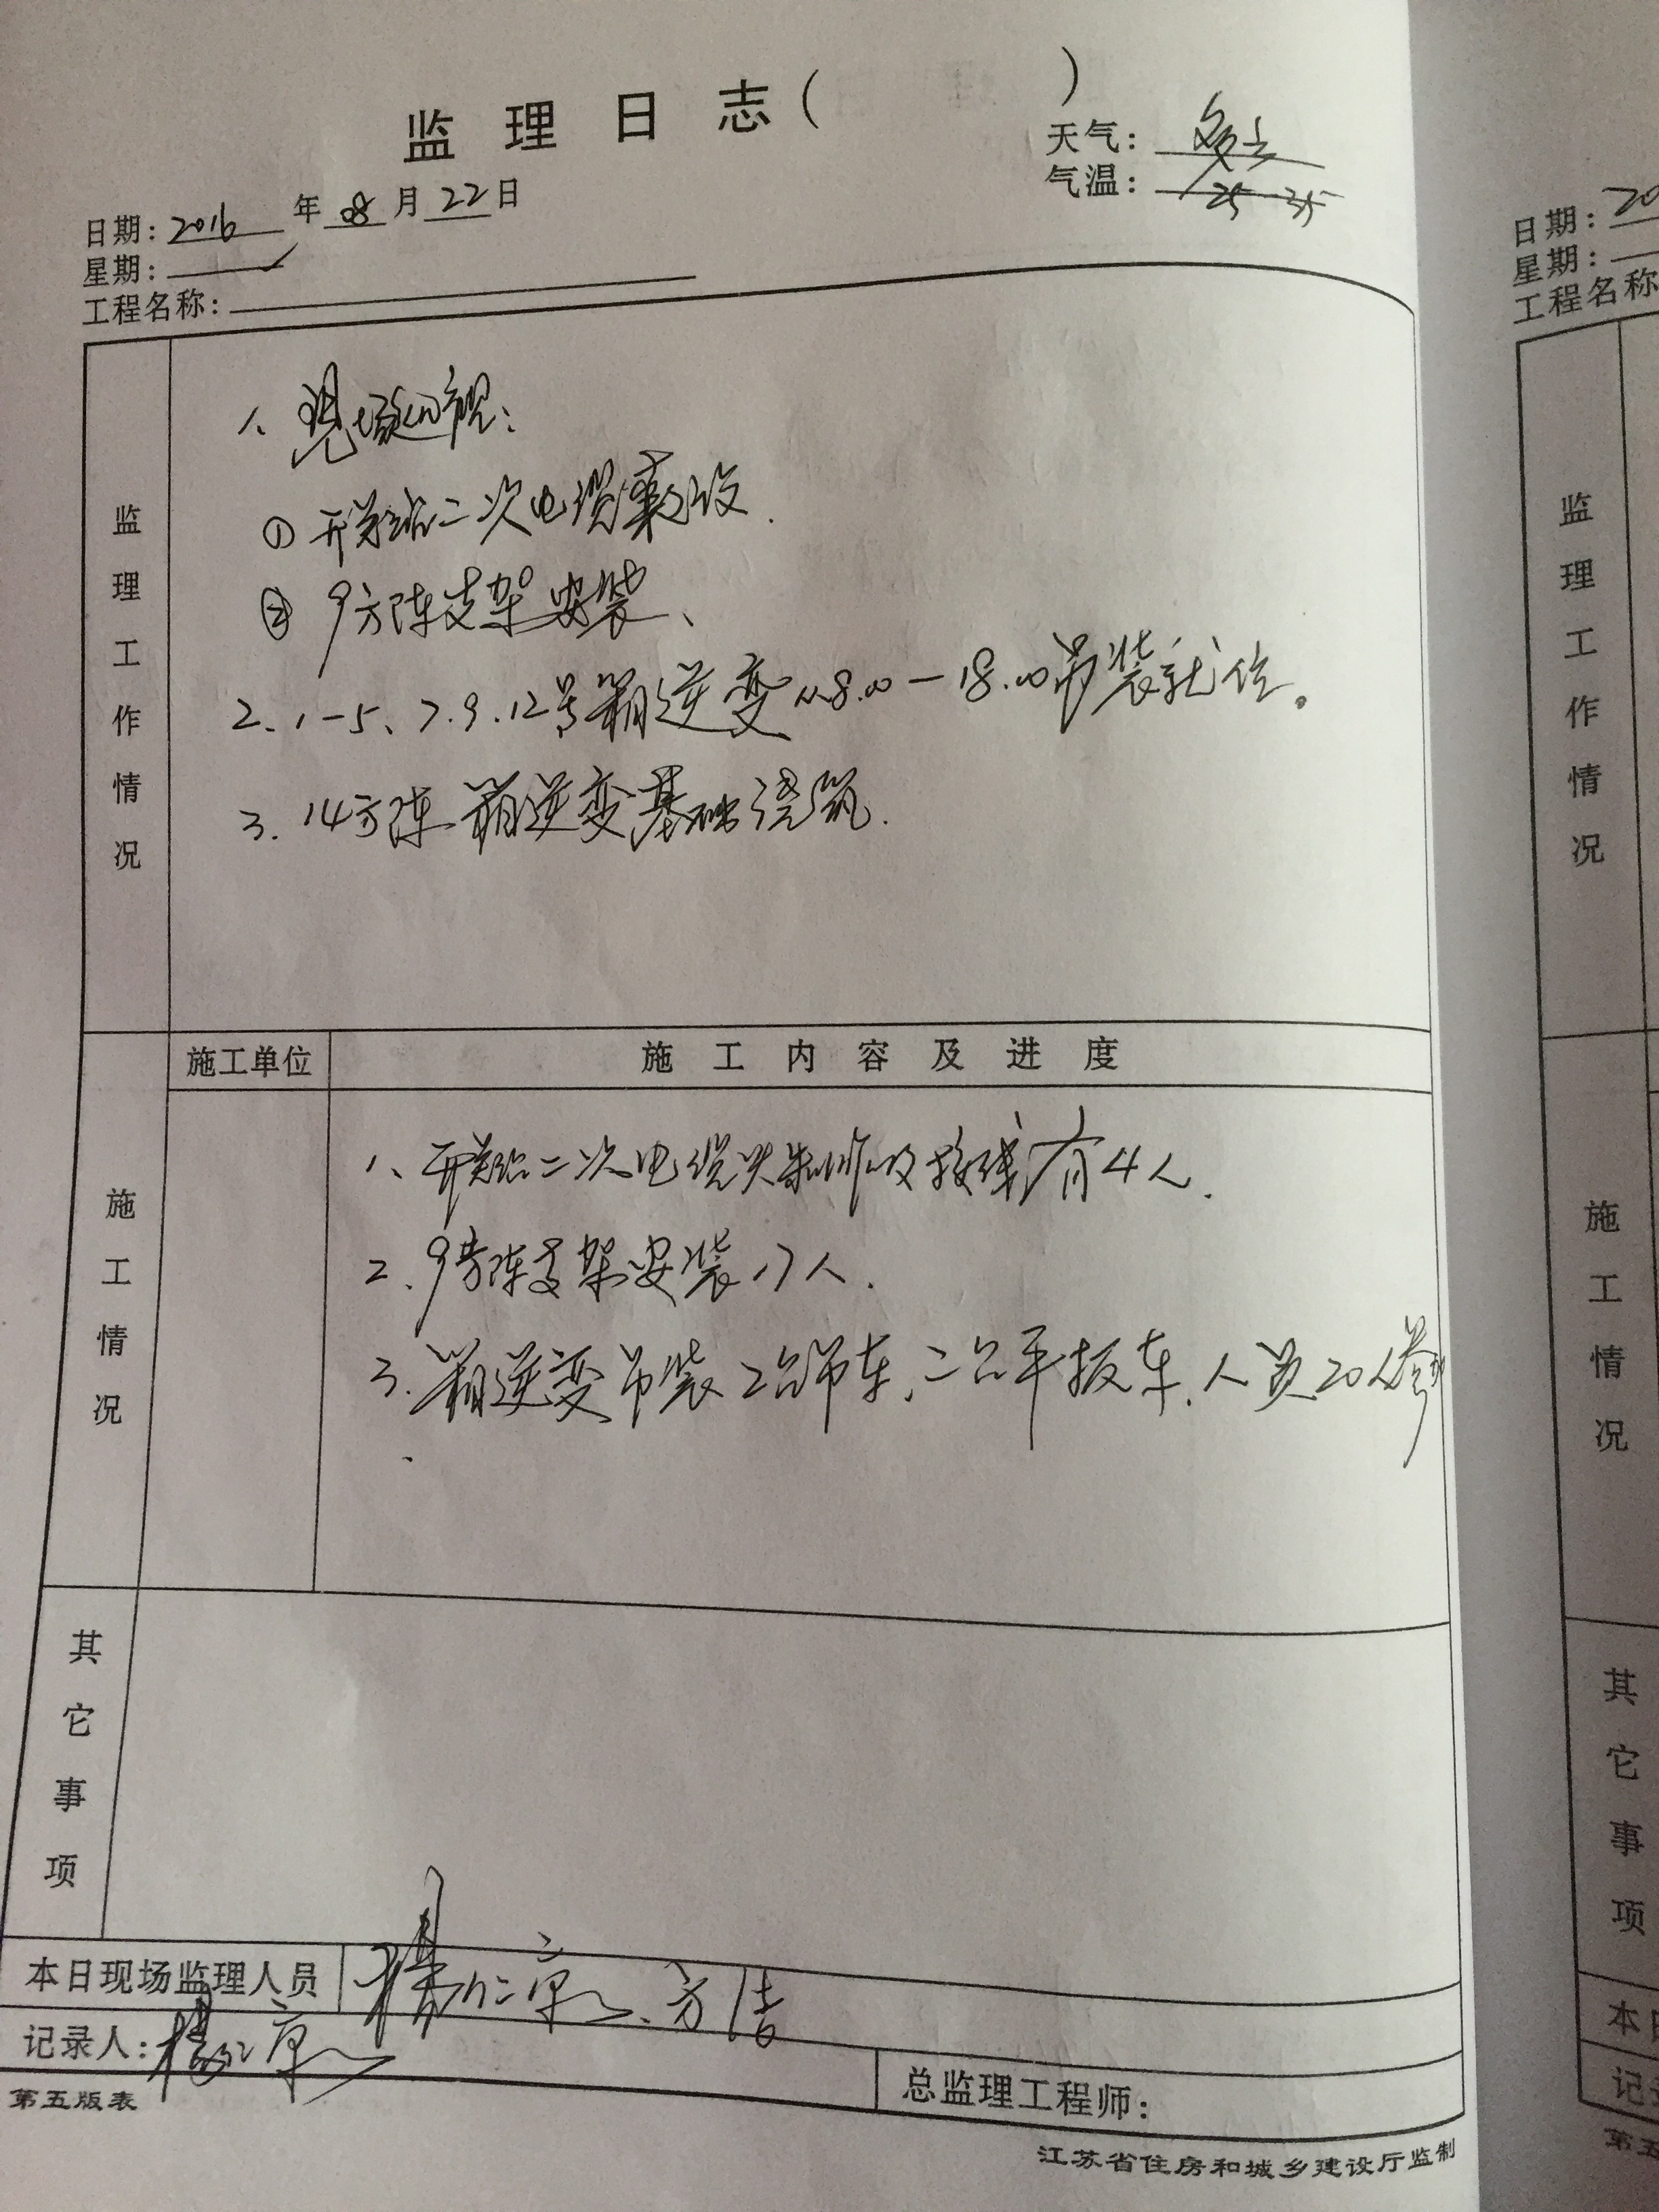 监理日志( )
天气: 多云
气温: 25-35
日期: 2016年08月22日
星期: 一
工程名称:
监理工作情况
1、现场巡视:
① 开关站二次电缆敷设.
② 9方阵支架安装、
2、1-5、7.9.12号箱逆变 8.00-18.00吊装就位。
3. 14方阵箱逆变基础浇筑.
施工单位 施工内容及进度
施工情况
1、开关站二次电缆头制作及接线有4人.
2. 9方阵支架安装17人.
3. 箱逆变吊装2台吊车,二台平板车,人员20人
其它事项
本日现场监理人员
记录人:
总监理工程师:
第五版表
江苏省住房和城乡建设厅监制
日期: 20
星期:
工程名称
监理工作情况
施工情况
其它事项